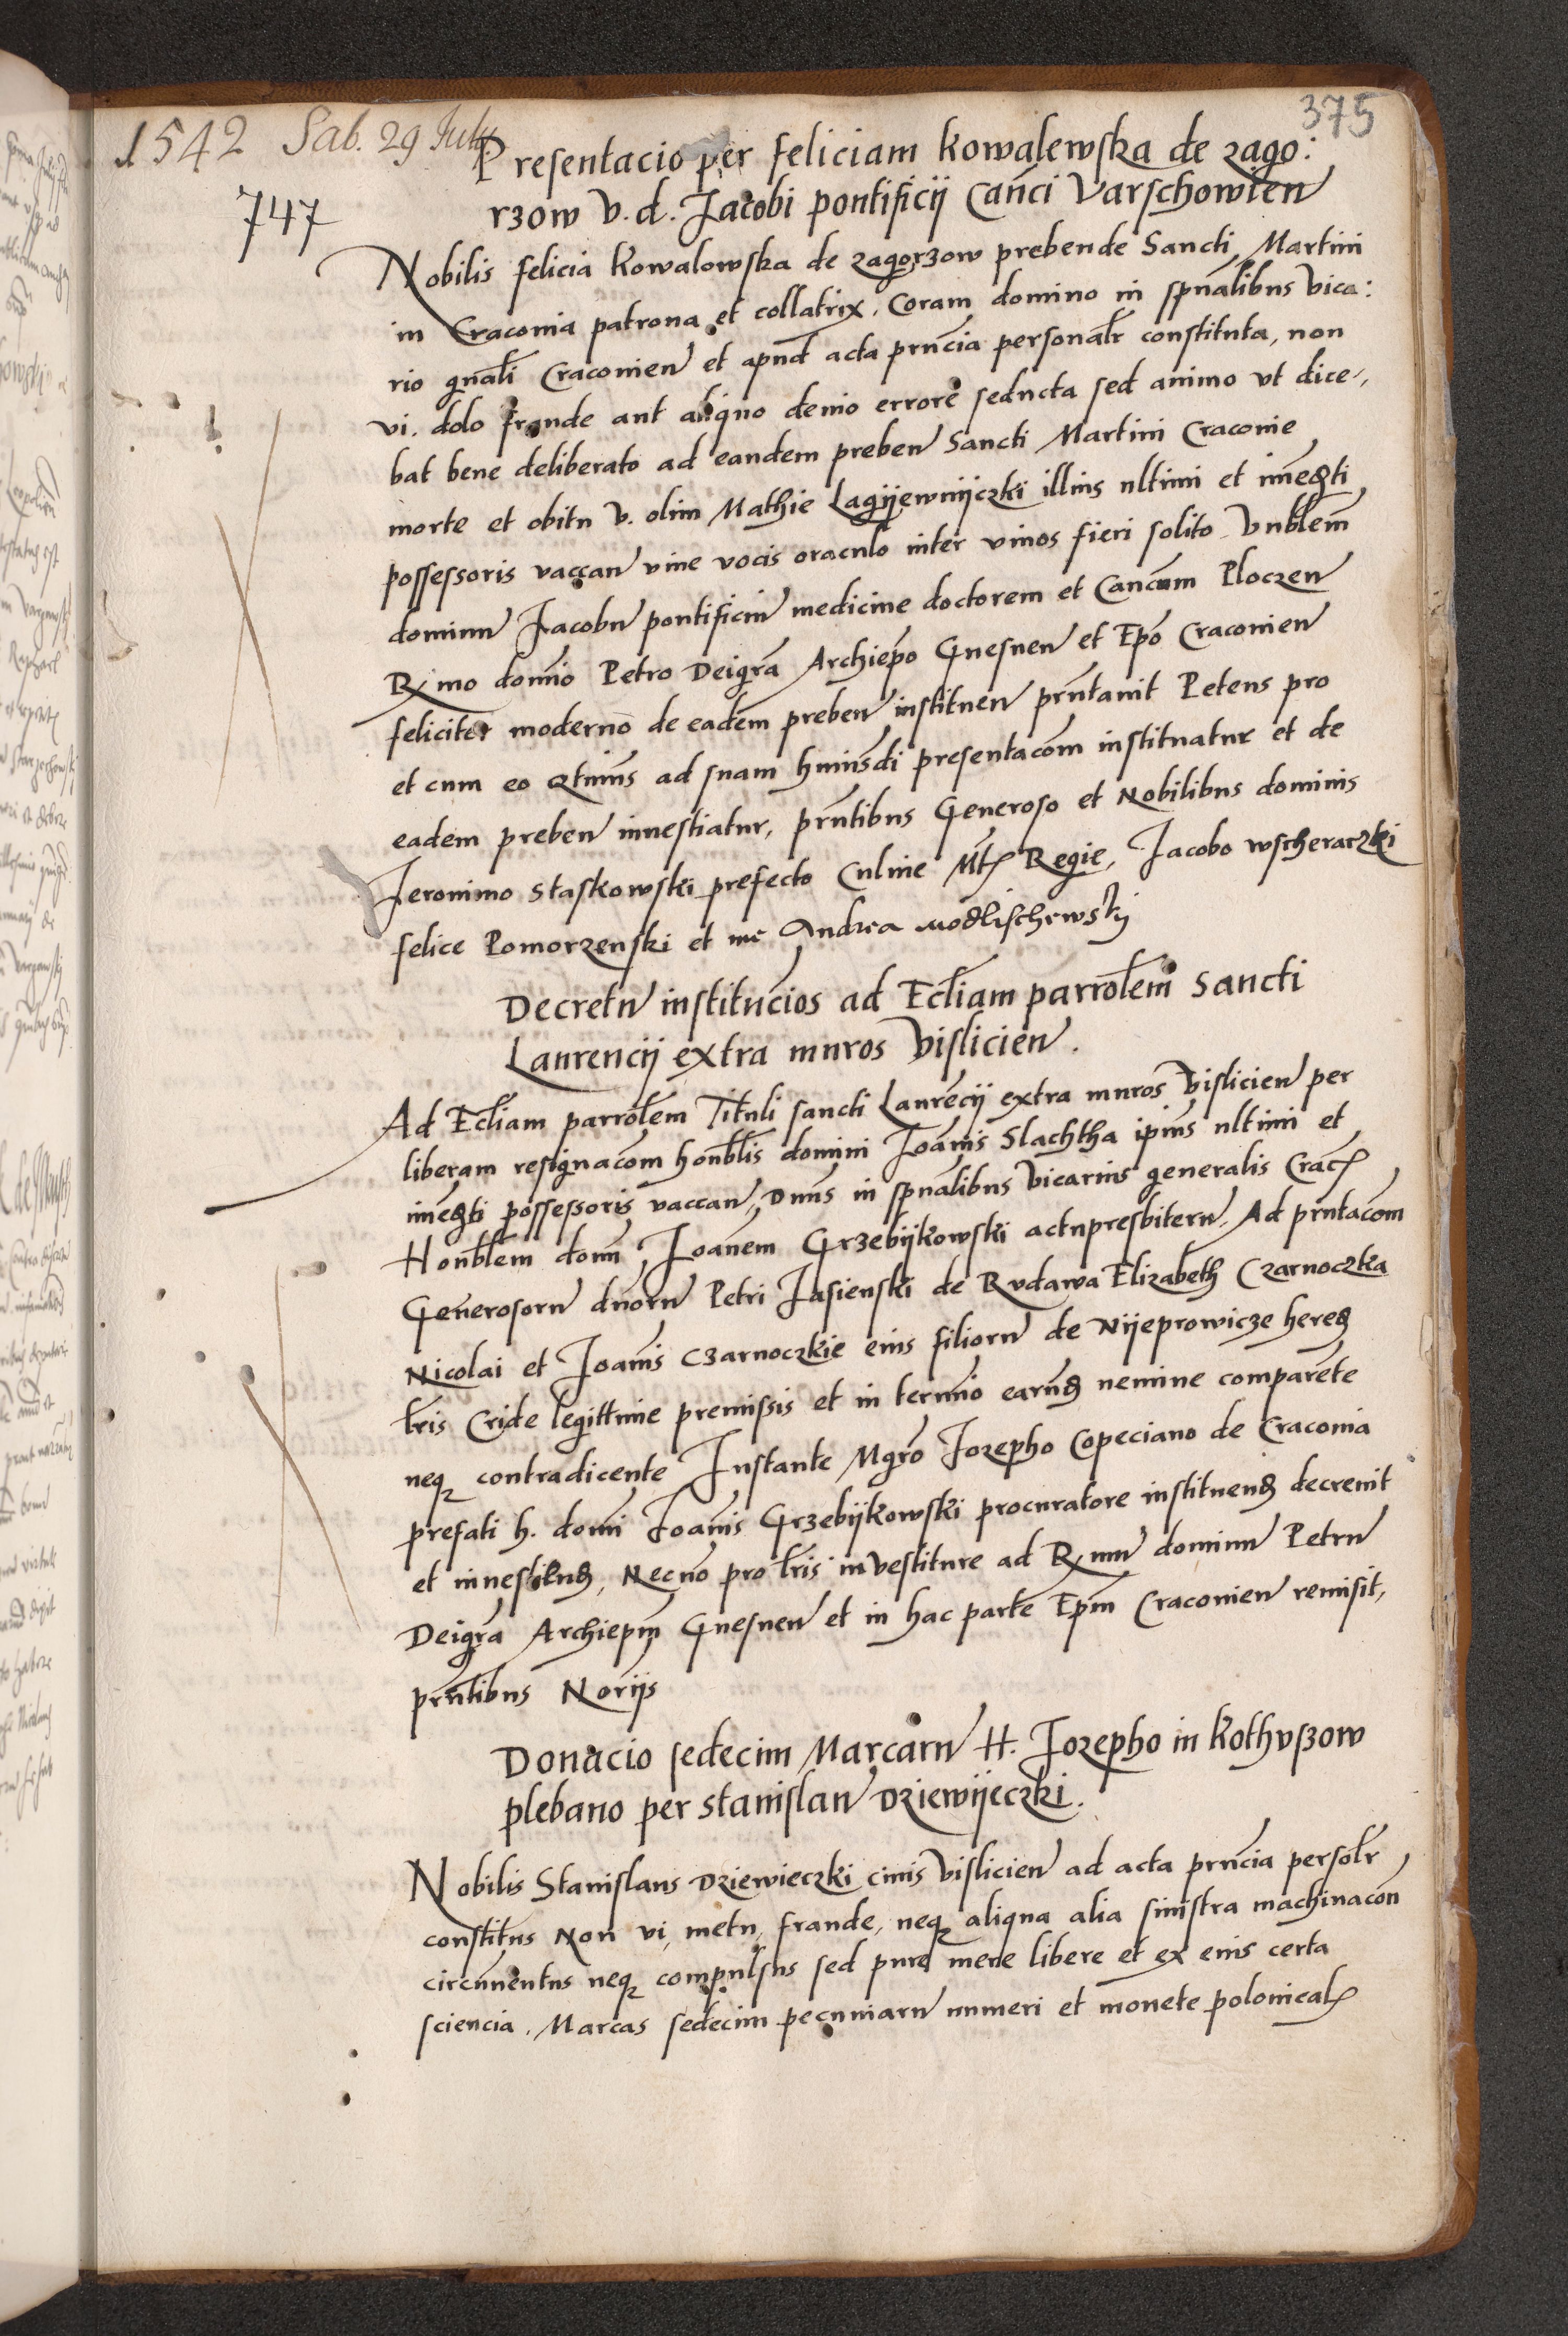 375
1542 Sab. 29 July
747
Presentacio per feliciam Kowalewska de zago:
rzow V. d. Jacobi pontificij Cañci Varschowieñ
Nobilis felicia Kowalowska de zagorzow prebende Sancti Martini
in Cracouia patrona et collatrix. Coram domino in spũalibus Vica:
rio gñali Cracouieñ et apud acta prñcia personalr constituta, non
vi. dolo fraude aut aliquo deuio errore seducta sed animo vt dice,
bat bene deliberato ad eandem prebeñ Sancti Martini Cracouie
morte et obitu V. olim Mathie Lagyewnijczki illius ultimi et imẽdti
possessoris vaccañ viue vocis oraculo inter viuos fieri solito Vnblem̃
dominũ Jacobũ pontificiũ medicine doctorem et Cancum Ploczeñ
Rxmo domĩo Petro Deigrã Archiepõ Gnesneñ et Epõ Cracouieñ
feliciter moderno de eadem prebeñ instituen̄ prñtauit Petens pro
et cum eo qtimus ad suam hmõdi presentacõm instituatur et de
eadem prebeñ inuestiatur, prñtibus Generoso et Nobilibus dominis
Jeronimo Staskowski prefecto Culine Mtis Regie, Jacobo wscheraczki
felice Pomorzenski et me Andrea Modlischewskij
Decretũ institucios ad Ecl̃iam parrol̃em Sancti
Laurencij extra muros Vislicieñ.
Ad Ecl̃iam parrol̃em Tituli sancti Laurẽcij extra muros Vislicieñ per
liberam resignacõm honbl̃is domini Joãnis Slachtha ipius ultimi et
imẽdti possessoris vaccañ, Dñus in spũalibus Vicarius generalis Crac̃
Honbl̃em domĩ Joãnem Grzebijkowski actu presbiterũ, Ad prñtacõm
Generosorũ dñorũ Petri Jasienski de Rudawa Elizabeth Czarnoczka
Nicolai et Joãnis Czarnoczkie eius filiorũ de Nijeprowicze hered
l̃ris Cride legittime premissis et in termio earund nemine comparẽte
neq3 contradicente Instante Mgrõ Jozepho Copeciano de Cracouia
prefati h. domĩ Joãnis Grzebijkowski procuratore instituend decreuit
et inuestiend, Necnõ pro l̃ris inVestiture ad Rxmũ dominũ Petrũ
Deigrã Archiepm̃ Gnesneñ et in hac parte Epm̃ Cracouieñ remisit,
prñtibus Norijs
Donacio sedecim Marcarũ H. Jozepho in Kothuszow
plebano per Stanislaũ Dziewijeczki.
Nobilis Stanislaus Dziewieczki ciuis Vislicieñ ad acta prñcia persolr
constitus Non vi, metu, fraude, neq3 aliqua alia sinistra machinacõn
circũuentus neq3 compulsus sed pure mere libere et ex eius certa
sciencia. Marcas sedecim pecuniarũ numeri et monete polonical̃